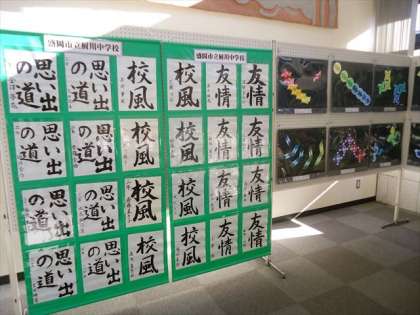 盛岡市立厨川中学校
思い出の道
思い出の道
校風
思い出の道
思い出の道
校風
思い出の道
思い出の道
校風
思い出の道
思い出の道
校風
盛岡市立厨川中学校
校風
友情
友情
校風
友情
友情
校風
友情
友情
校風
友情
友情